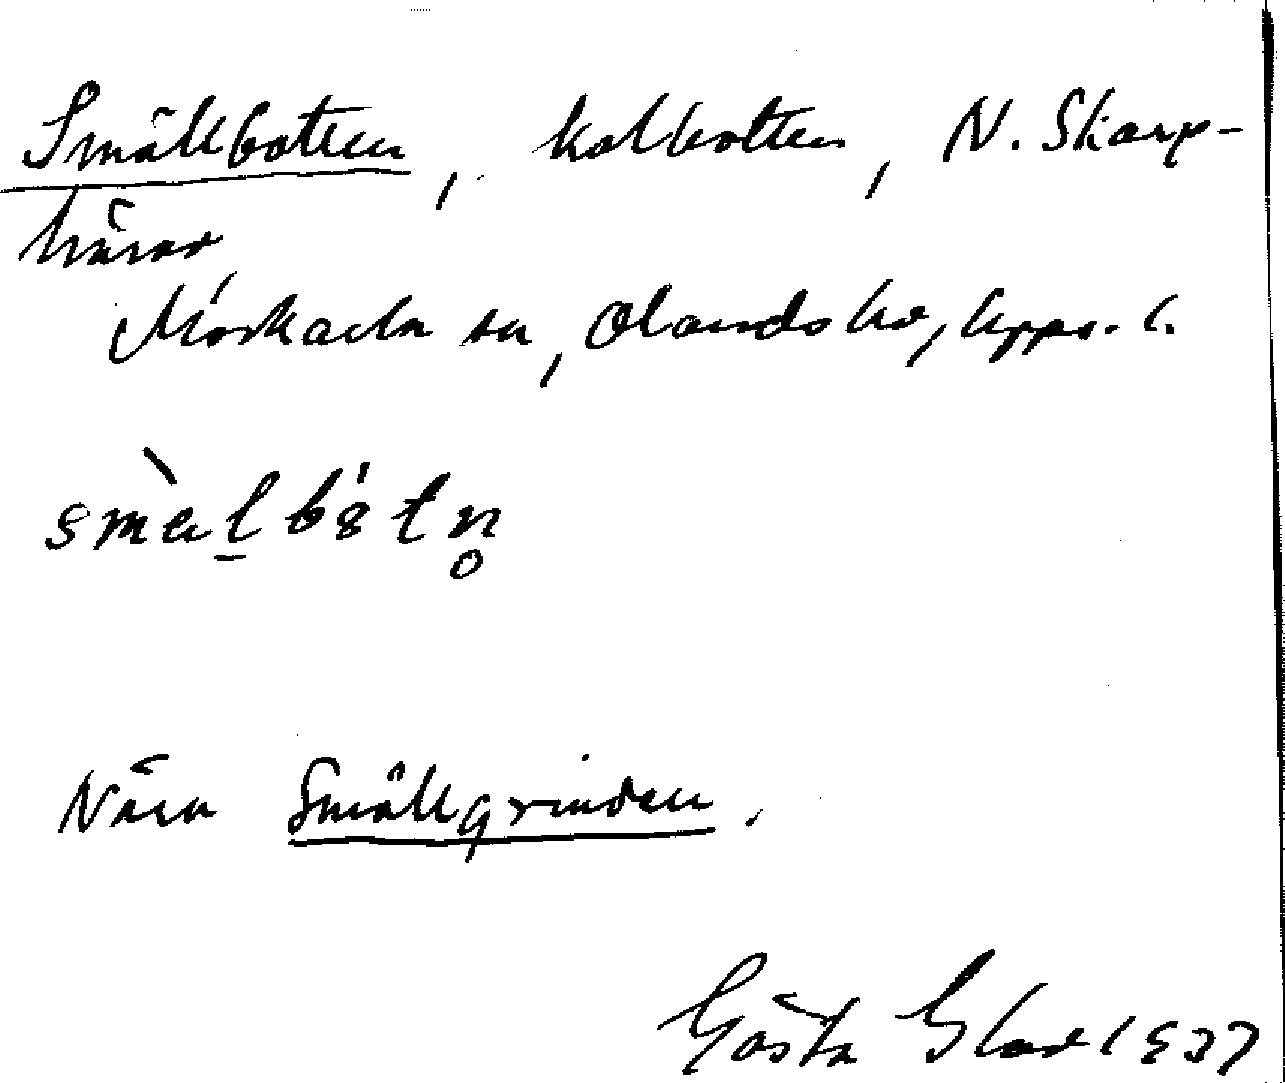 Smällbotten, kolbotten, N. Skarp-
härad
Morkarla sn, Olands hd, Upps. l.
Nära Smällgrinden.
Gösta Glad 1937